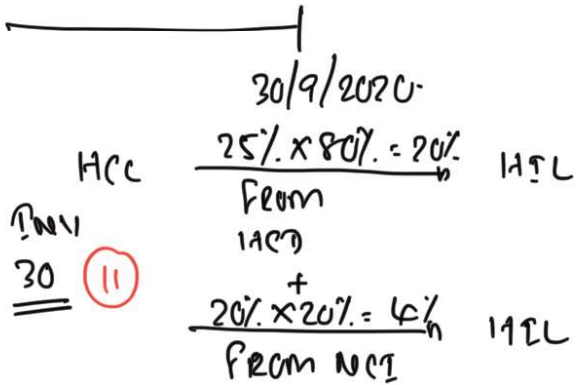 30/9/2020.
HCC 25% x 80% = 20% HIL
From
HCD
INV
30 11
+
20% x 20% = 4% HIL
From NCI